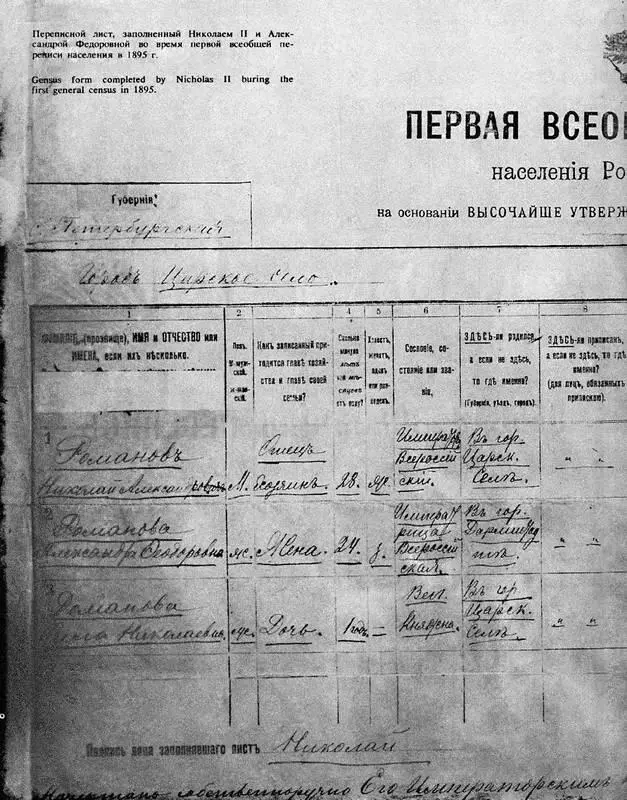 Переписной лист, заполненный Николаем II и Алек-
сандрой Федоровной во время первой всеобщей пе-
реписи населения в 1895 г.
Census form completed by Nicholas II buring the
first general census in 1895.
ПЕРВАЯ ВСЕОБ
населенія Ро
на основаніи ВЫСОЧАЙШЕ УТВЕРЖ
Губернія:
С. Петербургскій
Городъ Царское Село.
1 2 3 4 5 6 7 8
ФАМИЛІЯ, (прозвище), ИМЯ и ОТЧЕСТВО или
ИМЕНА, если ихъ нѣсколько.
Полъ.
М-муж-
ской.
Ж-жен-
скій.
Какъ записанный при-
ходится главѣ хозяй-
ства и главѣ своей
семьи?
Сколько
минуло
лѣтъ
или мѣ-
сяцевъ
отъ роду?
Холостъ,
женатъ,
вдовъ
или раз-
веденъ.
Сословіе, со-
стояніе или зва-
ніе.
ЗДѢСЬ-ли родился,
а если не здѣсь,
то гдѣ именно?
(Губернія, уѣздъ, городъ).
ЗДѢСЬ-ли приписанъ,
а если не здѣсь, то гдѣ
именно?
(для лицъ, обязанныхъ
припискою)
1
Романовъ
Николай Александровичъ
М.
Хозяинъ.
28.
Императоръ
Всероссій
скій.
Въ гор.
Царск.
Селѣ.
" "
2
Романова
Александра Феодоровна
ж.
Жена.
24.
з.
Импера
рица
Всероссій
ская.
Въ гор.
Дармштад
тѣ.
" "
3
Романова
Николаевна
ж.
Дочь.
1 годъ.
–
Вел.
Княжна.
Въ гор
Царск.
Селѣ.
" "
Подпись лица заполнявшаго листъ Николай
собственноручно Его Императорскимъ